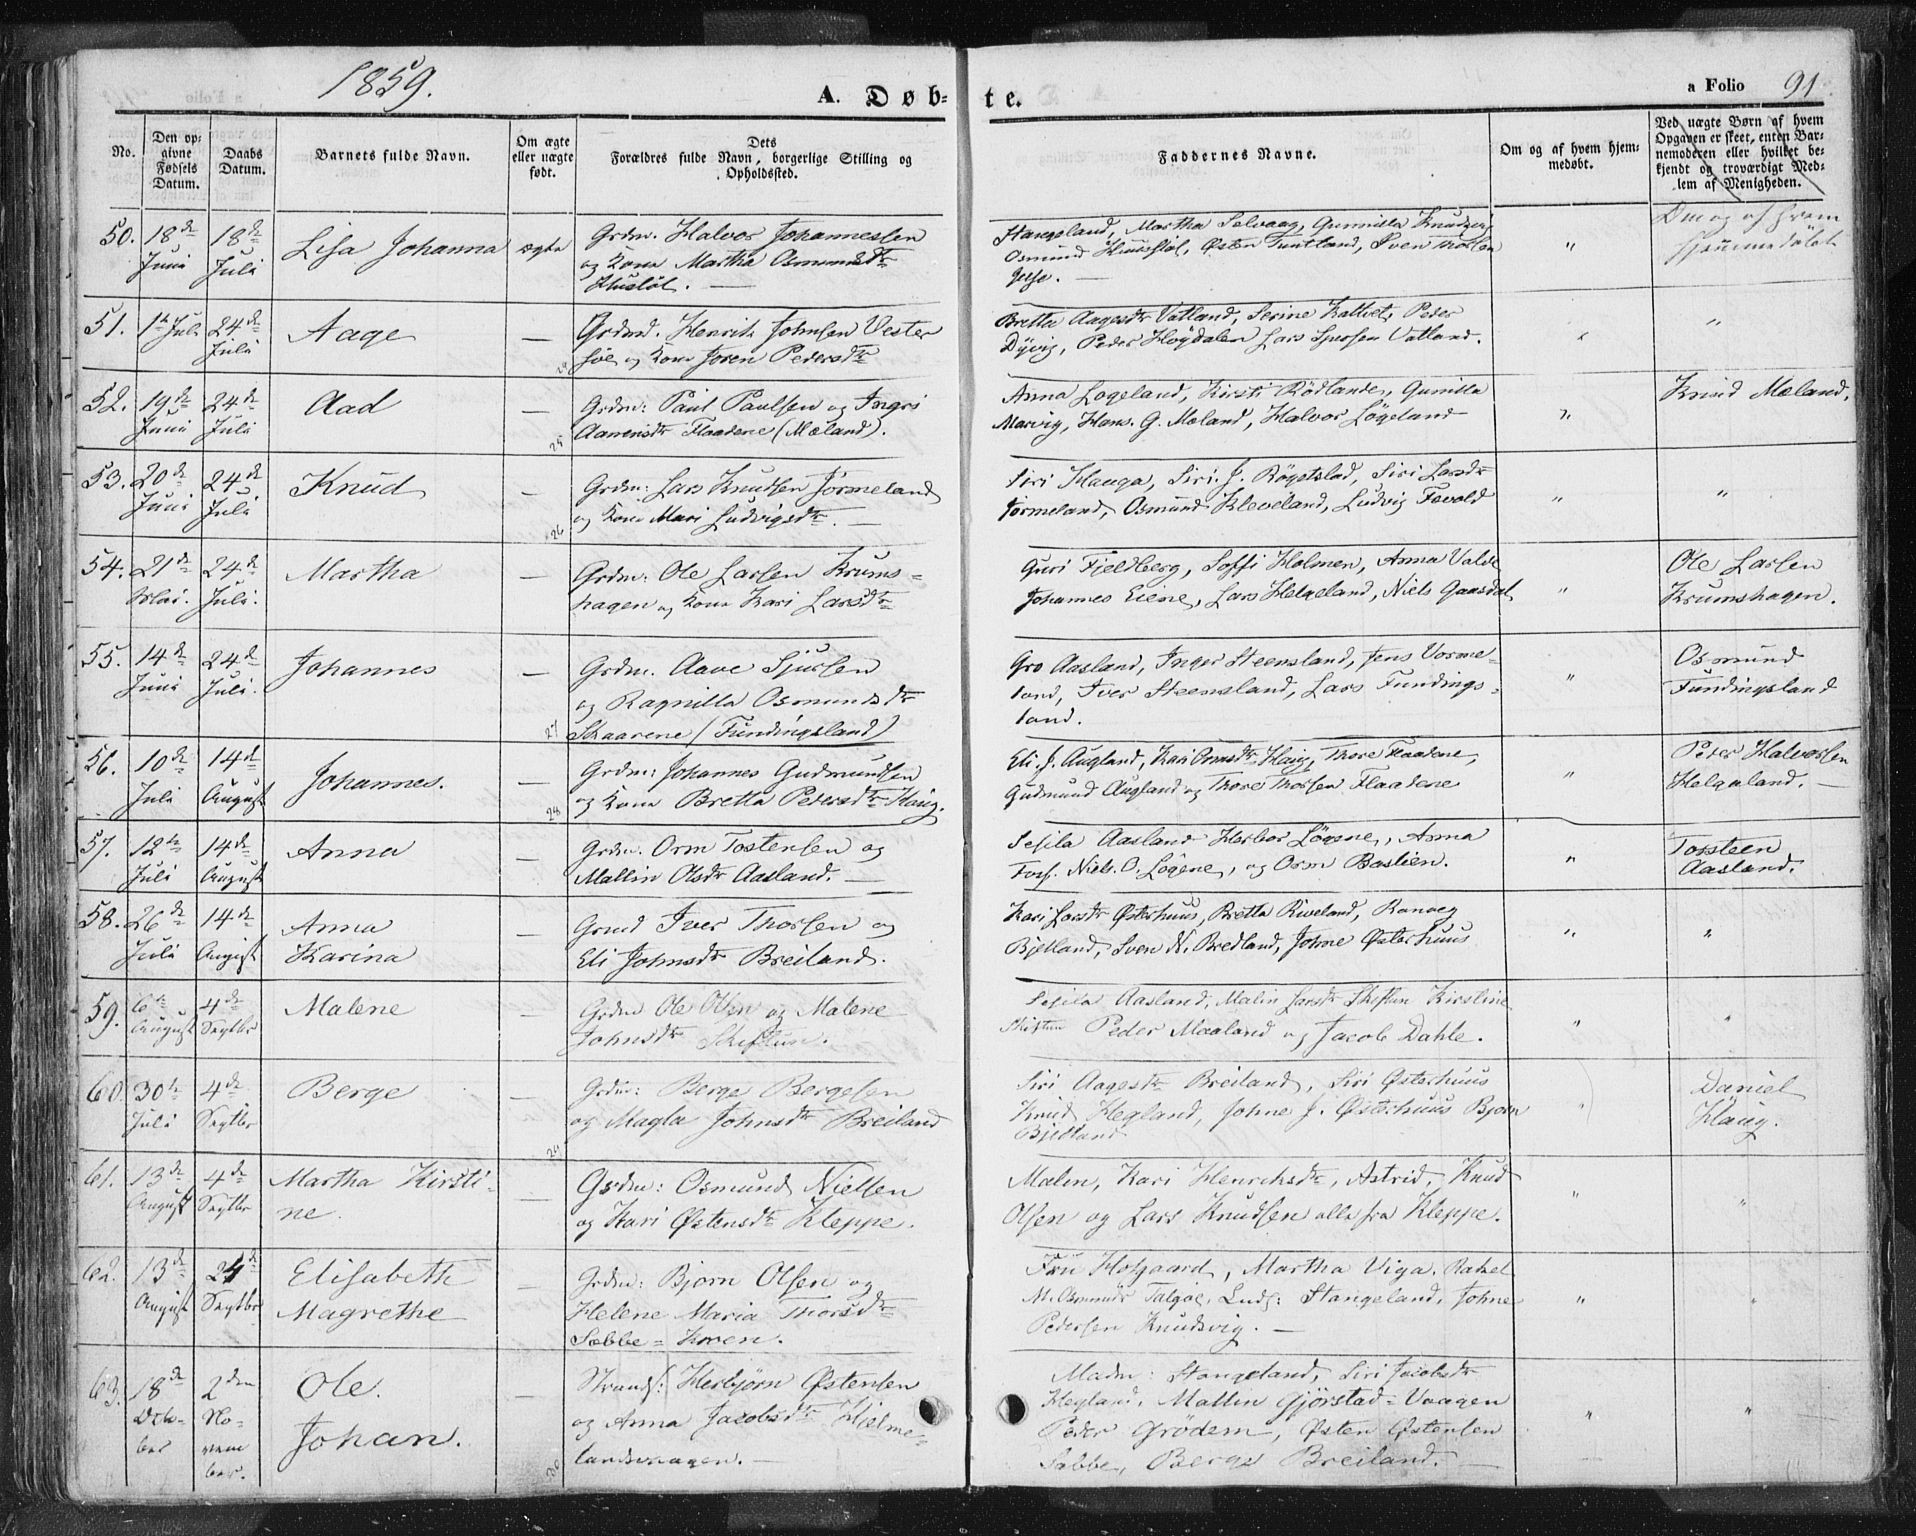 1859.
A. Døb-
te.
a Folio 91.
No.
Den op-
givne
Fødsels
Datum.
Daabs
Datum.
Barnets fulde Navn.
Om ægte
eller uægte
født.
Dets
Forældres fulde Navn, borgerlige Stilling og
Opholdssted.
Faddernes Navne.
Om og af hvem hjem-
medøbt.
Ved uægte Børn af hvem
Opgaven er skeet, enten Bar-
nemoderen eller hvilket be-
kjendt og troværdigt Med-
lem af Menigheden.
50. 18de Juni 18de Juli Lisa Johanna ægte
Grdm. Halvor Johannessen
og Kone Martha Osmundsdtr
Huslöl.
Stangeland, Martha Selvaag, Gunnilla Knudsvig
Osmund Østen Tuntland, Sven Thorsen
"
Om og af hvem
hjemmedøbt
51. 1te Juli 24de Juli Aage —
Grdmd. Henrik Johnsen Vester
og Kone Joren Pedersdtr
Bretta Aagesdtr Vatland, Serine Peder
Dÿvig, Peder Höÿdalen Lars Vatland.
"
52. 19de Juni 24de Juli Aad —
25
Grdm: Paul Paulsen og Ingri
Aanensdtr Flaadene (Mæland).
Anna Lögeland, Kirsti Rödlande, Gunilla
Marvig, Hans. G. Mæland, Halvor Lögeland
"
Knud Mæland.
53. 20de Juni 24de Juli. Knud —
26
Grdm: Lars Knudsen Törmeland
og Kone Mari Ludvigsdtr. —
Siri Hauga, Siri. J. Siri Larsdtr
Törmeland, Osmund Kleveland, Ludvig
" "
54. 21de 24de Juli. Martha —
Grdm: Ole Larsen Krums-
hagen og Kone Kari Larsdtr
Guri Fjeldberg, Soffi Holmen, Anna Valde
Johannes Eiene, Lars Helgeland, Niels Gaasdal
"
Ole Larsen
Krumshagen.
55. 14de Juni 24de Juli. Johannes —
27
Grdm. Aave Sjursen
og Ragnilla Osmundsdtr
Skaarene (Fundingsland)
Gro Aasland, Inger Steensland, Jens Vorme-
land, Iver Steensland, Lars Fundings-
land.
"
Osmund
Fundingsland
56. 10de Juli 14de August Johannes. —
28
Grdm: Johannes Gudmundsen
og Kone Bretta Pedersdtr Haug.
Eli. J. Augland, Kari Ormsdtr Haug, Thore Flaadene,
Gudmund Augland og Thore Thorsen Flaadene
"
Peder Halvorsen
Helgaland. —
57. 12te Juli 14de August Anna —
Grdm. Orm Tostensen og
Mallin Olsdtr Aasland. —
Sesila Aasland Herbor Lögene, Anna
Niels. O. Lögene, og Orm Bastien.
"
Torsteen
Aasland.
58. 26de Juli 14de August Anna
Karina —
Grmd Iver Thorsen og
Eli Johnsdtr Breiland.
Kari Larsdtr Østerhuus, Bretta Riveland, Ranveg
Bjelland, Sven N. Bredland, Johne Østerhuus
" "
59. 6te August 4de Septbr Malene —
Grdm Ole Olsen og Malene
Johnsdtr Skiftun.
Sesila Aasland, Malin Larsdtr Skiftun Kirstine
Skiftun Peder Maaland og Jacob Dahle.
" "
60. 30te Juli 4de Septbr Berge —
29
Grdm: Berge Bergesen
og Magla Johnsdtr Breiland
Siri Aagesdtr Breiland, Siri Østerhuus
Knud Hegland, Johne J. Østerhuus Bjørn
Bjelland
"
Daniel
Haug.
61. 13de August 4de Septbr Martha Kirsti-
ne. —
Grdm: Osmund Nielsen
og Kari Østensdtr Kleppe.
Malin, Kari Henriksdtr, Astrid, Knud
Olsen og Lars Knudsen alle fra Kleppe.
" "
62. 13de August 24de Septbr Elisabeth
Magrethe —
Grdm: Bjørn Olsen og
Helene Maria Thorsdtr
Sæbbe-
Fru Hofgaard, Martha Viga. Rakel
Ludv: Stangeland, Johne
Pedersen Knudsvig. —
" "
63. 18de Octo-
ber 2den No-
vem
ber. Ole.
Johan. —
30
Strands: Herbjørn Østensen
og Anna Jacobsdtr Hjelme-
landsvaagen. —
Madm: Stangeland, Siri Jacobsdtr
Hegland, Mallin Gjörstad-Vaagen
Peder Grödem, Østen Østensen
Sæbbe, Berge Breiland. —
" "